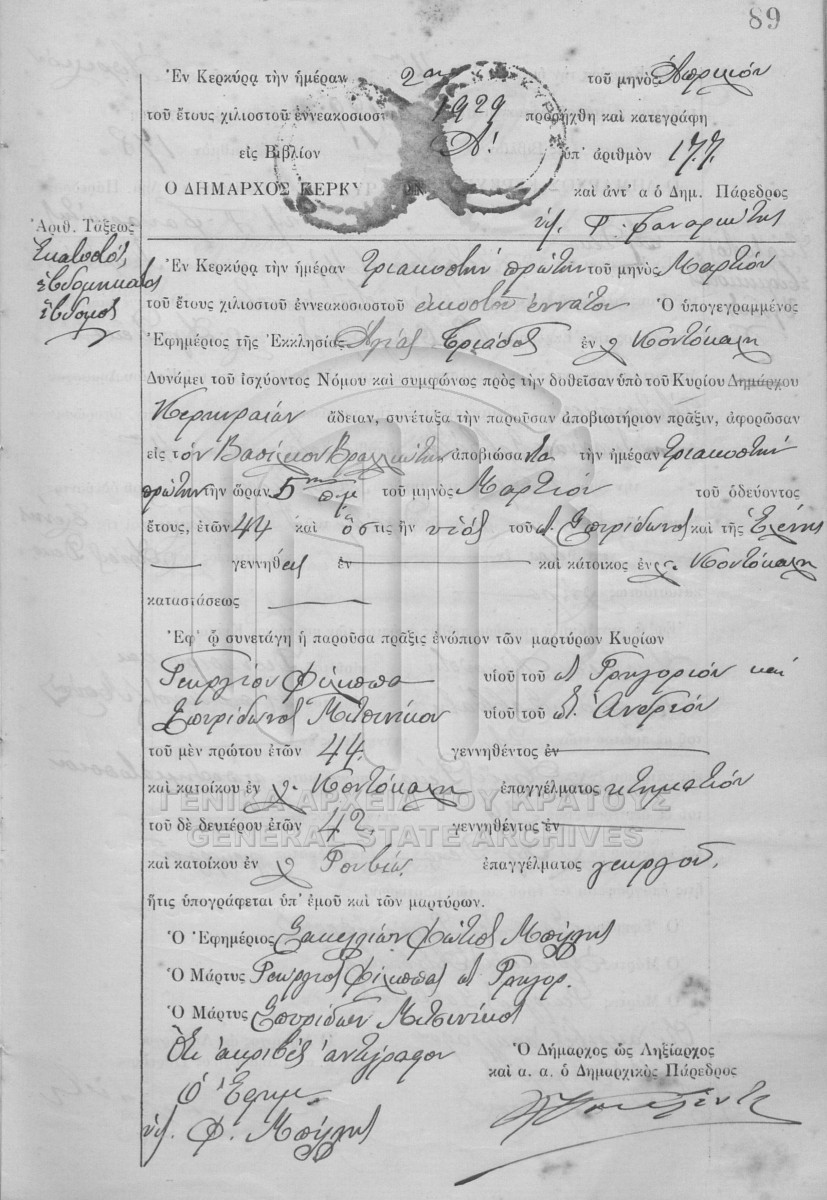 89
Ἐν Κερκύρᾳ τὴν ἡμέραν 2αν τοῦ μηνὸς Ἀπριλίου
τοῦ ἔτους χιλιοστοῦ ἐννεακοσιοστοῦ 1929 προσήχθη καὶ κατεγράφη
εἰς Βιβλίον Α! ὑπ' ἀριθμὸν 177.
Ο ΔΗΜΑΡΧΟΣ ΚΕΡΚΥΡΑΙΩΝ καὶ ἀντ' α ὁ Δημ. Πάρεδρος
Φαναριώτης
Ἀριθ. Τάξεως
Ἑκατοστὸς
ἑβδομηκοστὸς
ἕβδομος
Ἐν Κερκύρᾳ τὴν ἡμέραν τριακοστὴν πρώτην τοῦ μηνὸς Μαρτίου
τοῦ ἔτους χιλιοστοῦ ἐννεακοσιοστοῦ εἰκοστοῦ ἐννάτου Ὁ ὑπογεγραμμένος
Ἐφημέριος τῆς Ἐκκλησίας Ἁγίας Τριάδος ἐν χ. Κοντόκαλη
Δυνάμει τοῦ ἰσχύοντος Νόμου καὶ συμφώνως πρὸς τὴν δοθεῖσαν ὑπὸ τοῦ Κυρίου Δημάρχου
Κερκυραίων ἄδειαν, συνέταξα τὴν παροῦσαν ἀποβιωτήριον πρᾶξιν, ἀφορῶσαν
εἰς τὸν Βασίλειον ἀποβιώσαντα τὴν ἡμέραν τριακοστὴν
πρώτην τὴν ὥραν 5ην π.μ. τοῦ μηνὸς Μαρτίου τοῦ ὁδεύοντος
ἔτους, ἐτῶν 44 καὶ ὅστις ἦν υἱὸς τοῦ Σπυρίδωνος καὶ τῆς Ἑλένης
γεννηθεὶς ἐν καὶ κάτοικος ἐν χ. Κοντόκαλη
καταστάσεως
Ἐφ' ᾧ συνετάγη ἡ παροῦσα πρᾶξις ἐνώπιον τῶν μαρτύρων Κυρίων
Γεωργίου Φίλιππα υἱοῦ τοῦ Γρηγορίου καὶ
Σπυρίδωνος Μιτσινίκου υἱοῦ τοῦ Ἀνδρέου
τοῦ μὲν πρώτου ἐτῶν 44. γεννηθέντος ἐν
καὶ κατοίκου ἐν χ. Κοντόκαλη ἐπαγγέλματος κτηματίου
ΓΕΝΙΚΑ ΑΡΧΕΙΑ ΤΟΥ ΚΡΑΤΟΥΣ
τοῦ δὲ δευτέρου ἐτῶν 42. γεννηθέντος ἐν
GENERAL STATE ARCHIVES
καὶ κατοίκου ἐν χ. Γουβιά ἐπαγγέλματος γεωργοῦ.
ἥτις ὑπογράφεται ὑπ' ἐμοῦ καὶ τῶν μαρτύρων.
Ὁ Ἐφημέριος Σακελλίων Φώτιος Μπόλης
Ὁ Μάρτυς Γεώργιος Φίλιππας Γρηγορ.
Ὁ Μάρτυς Σπυρίδων Μιτσινίκος
Ὅτι ἀκριβὲς ἀντίγραφον
Ὁ Ἐφημ.
Φ. Μπόλης
Ὁ Δήμαρχος ὡς Ληξίαρχος
καὶ α. α. ὁ Δημαρχικὸς Πάρεδρος